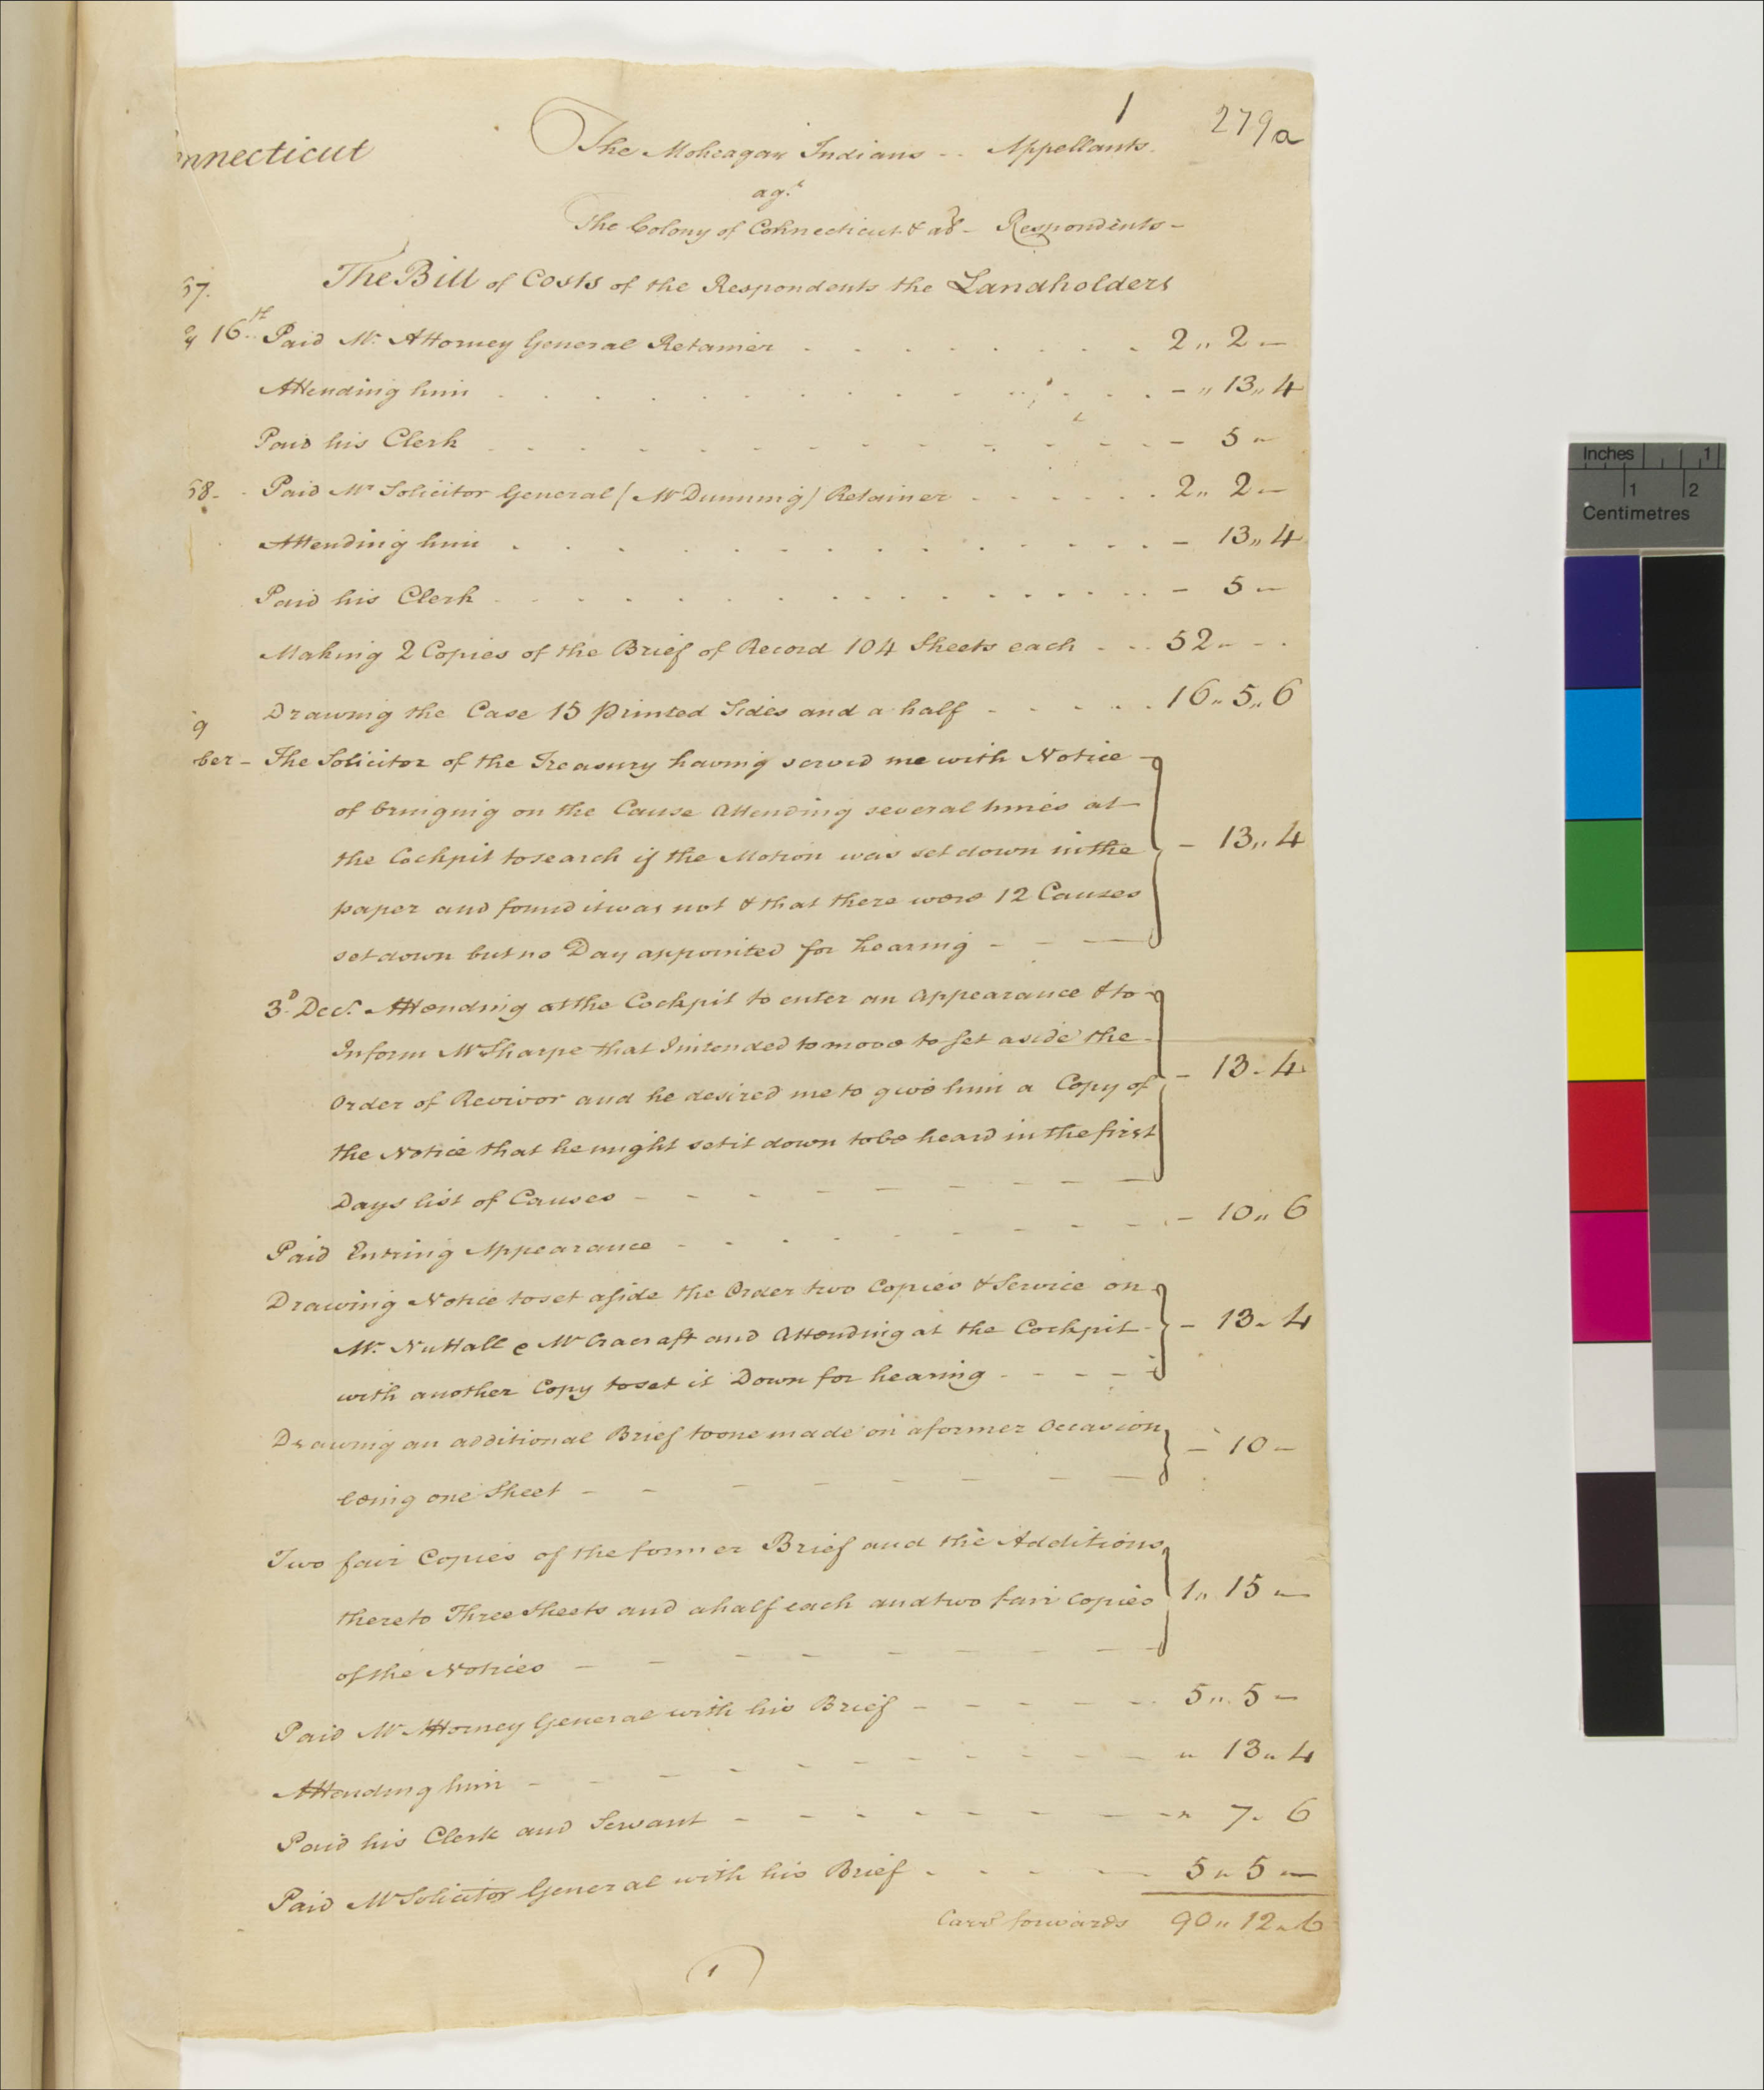 1 279a
nnecticut The Moheagan Indians - - Appellants.
agt
The Colony of Connecticut & als - Respondents -
The Bill of Costs of the Respondents the Landholders
67.
y 16th Paid Mr. Attorney General Retainer 2 " 2 -
Attending him - " 13 " 4
Paid his Clerk - 5 -
68. Paid Mr Solicitor General (Mr Dunning) Retainer 2 " 2 -
Attending him - 13 " 4
Paid his Clerk - 5 -
Making 2 Copies of the Brief of Record 104 Sheets each 52 " - -
Drawing the Case 15 printed Sides and a half 16 " 5 " 6
9
ber - The Solicitor of the Treasury having served me with Notice
of bringing on the Cause Attending several times at
the Cockpit to search if the Motion was set down in the - 13 " 4
paper and found it was not & that there were 12 Causes
set down but no Day appointed for hearing
3d. Decr. Attending at the Cockpit to enter an Appearance & to
Inform Mr Sharpe that I intended to move to set aside the
Order of Revivor and he desired me to give him a Copy of - 13 - 4
the Notice that he might set it down to be heard in the first
Days list of Causes
Paid Entring Appearance - 10 " 6
Drawing Notice to set aside the Order two Copies & Service on
Mr. Nuttall & Mr Cracraft and Attending at the Cockpit - 13 - 4
with another Copy to set it Down for hearing
Drawing an additional Brief to one made on a former Occasion - 10 -
being one Sheet
Two fair Copies of the former Brief and the Additions
thereto Three Sheets and a half each and two fair Copies 1 " 15 -
of the Notices
Paid Mr Attorney General with his Brief 5 " 5 -
Attending him " 13 " 4
Paid his Clerk and Servant - " 7 - 6
Paid Mr Solicitor General with his Brief 5 " 5 -
Carrd forwards 90 " 12 " 6
1
Inches 1
1 2
Centimetres